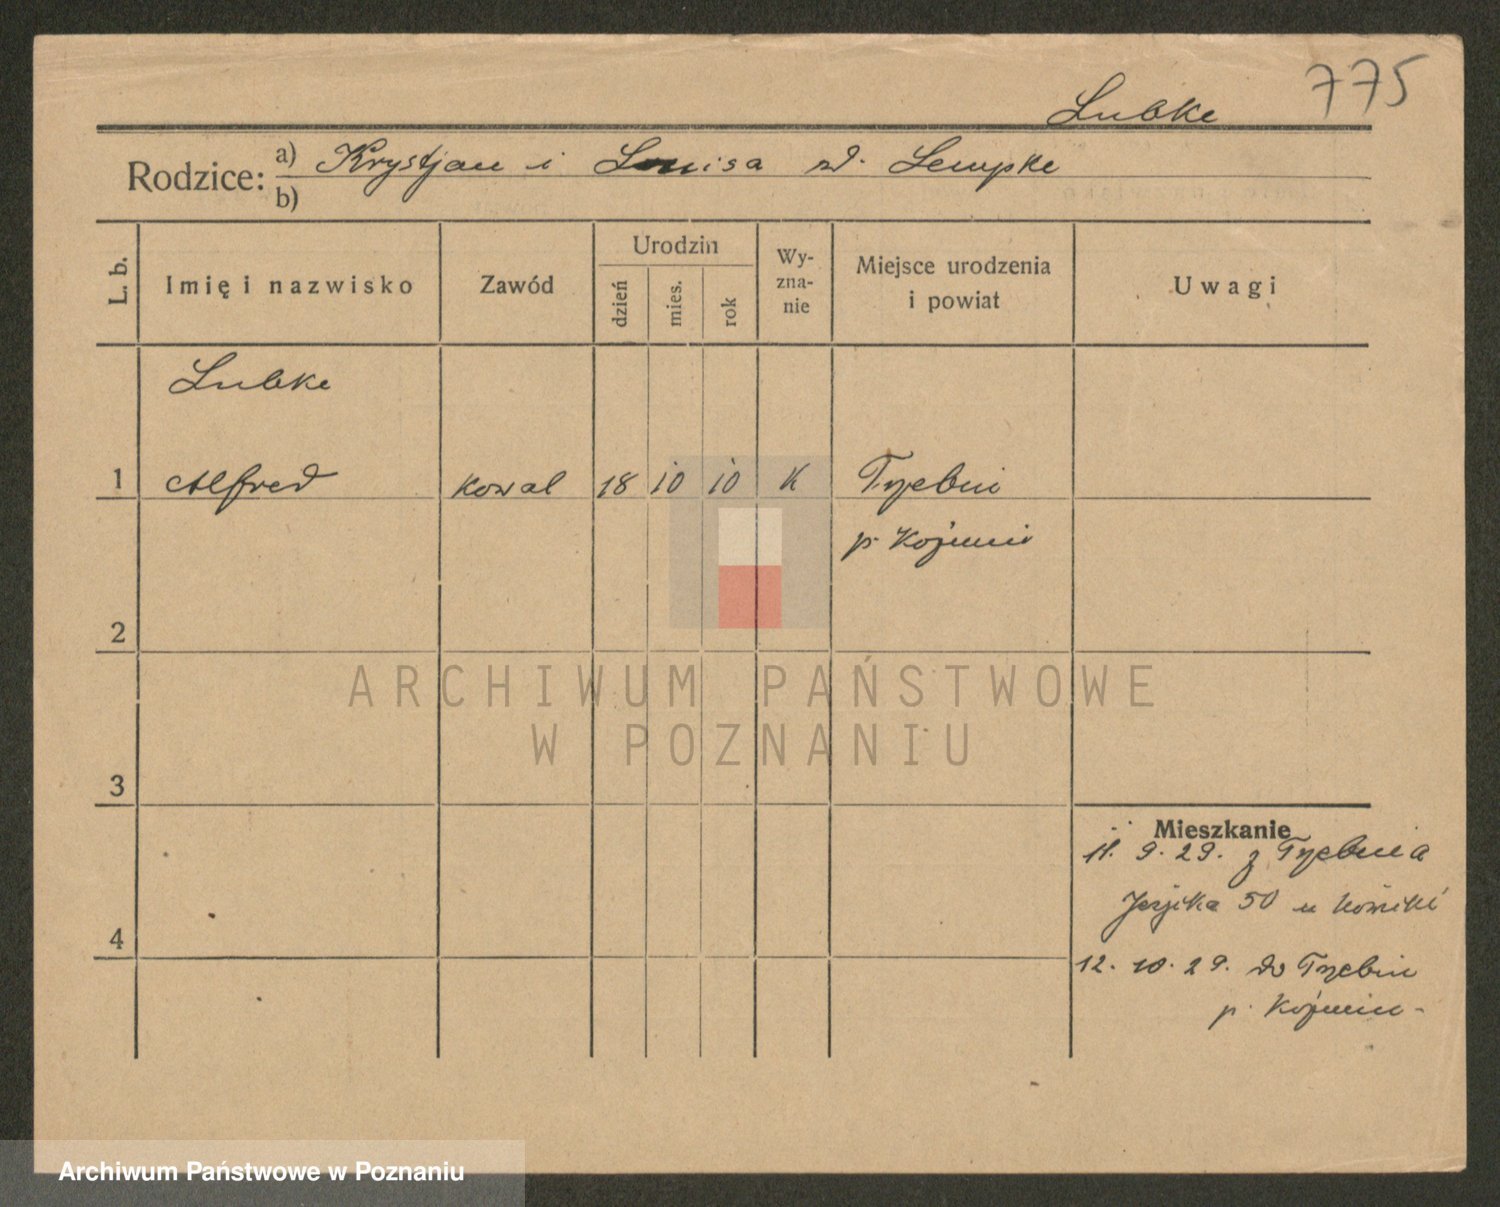 775
Lubke
Rodzice: a) Krystjan i Louisa zd. Lempke
b)
L. b.
Imię i nazwisko
Zawód
Urodzin
dzień
mies.
rok
Wy-
zna-
nie
Miejsce urodzenia
i powiat
Uwagi
Lubke
1 Alfred kowal 18 10 10 K Trzebin
p. Koźmin
2
3
4
Mieszkanie
11. 9. 29. z Trzebina
50 u
12. 10. 29. do Trzebin
p. Koźmin
ARCHIWUM PAŃSTWOWE
W POZNANIU
Archiwum Państwowe w Poznaniu